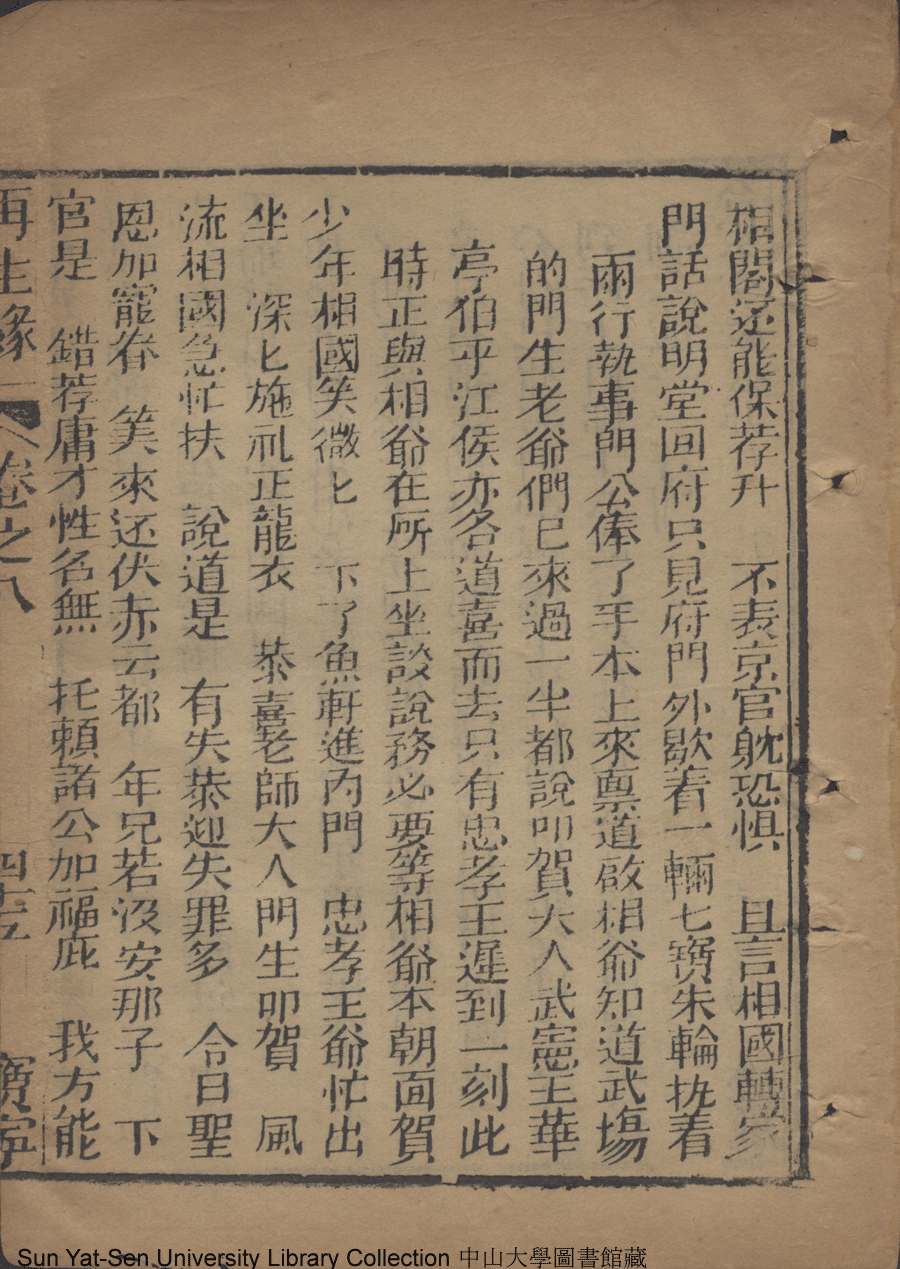 相閣还能保荐升　不表京官躭恐惧　且言相國轉家
門話說明堂回府只見府門外歇着一輛七寶朱輪扰着
兩行執事門公俸了手本上來禀道啟相爺知道武塲
的門生老爺們已來過一半都說叩賀大人武憲王華
亭伯平江侯亦各道喜而去只有忠孝王遲到一刻此
時正與相爺在所上坐談說務必要等相爺本朝面賀
少年相國笑微匕　下了魚軒進內門　忠孝王爺忙出
坐　深匕施礼正龍衣　恭喜老師大人門生叩賀　風
流相國急忙扶　說道是　有失恭迎失罪多　今日聖
恩加寵眷　笑來还伏赤云都　年兄若没安那子　下
官是　錯荐庸才性名無　托頼諸公加福庇　我方能
再生緣　卷之八　四十五　寶寧
Sun Yat-Sen University Library Collection 中山大學圖書館藏